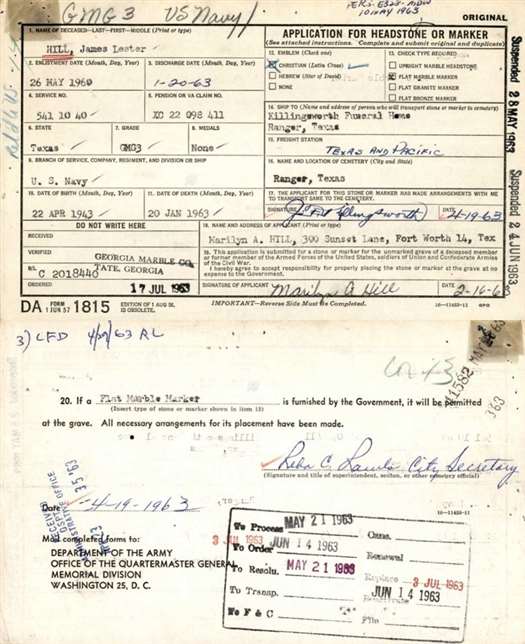 GMG3 US Navy
10 MAY 1963
ORIGINAL
1. NAME OF DECEASED—LAST—FIRST—MIDDLE (Print or type)
HILL, James Lester
2. ENLISTMENT DATE (Month, Day, Year)
3. DISCHARGE DATE (Month, Day, Year)
26 MAY 1960
1-20-63
4. SERVICE NO.
5. PENSION OR VA CLAIM NO.
541 10 40
XC 22 098 411
6. STATE
7. GRADE
8. MEDALS
Texas
GMG3
None
9. BRANCH OF SERVICE, COMPANY, REGIMENT, AND DIVISION OR SHIP
U. S. Navy
10. DATE OF BIRTH (Month, Day, Year)
11. DATE OF DEATH (Month, Day, Year)
22 APR 1943
20 JAN 1963
DO NOT WRITE HERE
RECEIVED
VERIFIED
GEORGIA MARBLE CO.
TATE, GEORGIA
B/L
C 2018440
ORDERED
17 JUL 1963
APPLICATION FOR HEADSTONE OR MARKER
(See attached instructions. Complete and submit original and duplicate)
12. EMBLEM (Check one)
CHRISTIAN (Latin Cross)
HEBREW (Star of David)
NONE
13. CHECK TYPE REQUIRED
UPRIGHT MARBLE HEADSTONE
FLAT MARBLE MARKER
FLAT GRANITE MARKER
FLAT BRONZE MARKER
14. SHIP TO (Name and address of person who will transport stone or marker to cemetery)
Killingsworth Funeral Home
Ranger, Texas
15. FREIGHT STATION
TEXAS AND PACIFIC
16. NAME AND LOCATION OF CEMETERY (City and State)
Ranger, Texas
17. THE APPLICANT FOR THIS STONE OR MARKER HAS MADE ARRANGEMENTS WITH ME TO TRANSPORT SAME TO THE CEMETERY.
SIGNATURE
DATE
4-19-63
18. NAME AND ADDRESS OF APPLICANT (Print or type)
Marilyn A. HILL, 300 Sunset Lane, Fort Worth 14, Tex
19. This application is submitted for a stone or marker for the unmarked grave of a deceased member or former member of the Armed Forces of the United States, soldiers of Union and Confederate Armies of the Civil War.
I hereby agree to accept responsibility for properly placing the stone or marker at the grave at no expense to the Government.
SIGNATURE OF APPLICANT
Marilyn A Hill
DATE
2-16-6
DA FORM 1 JUN 57 1815
EDITION OF 1 AUG 51 IS OBSOLETE.
IMPORTANT—Reverse Side Must be Completed.
GPO
Suspended 28 MAY 1963
Suspended 24 JUN 1963
3) LFD 4/29/63 RL
20. If a Flat Marble Marker is furnished by the Government, it will be permitted
(Insert type of stone or marker shown in item 13)
at the grave. All necessary arrangements for its placement have been made.
City Secretary
(Signature and title of superintendent, sexton, or other cemetery official)
Date 4-19-1963
Mail completed forms to:
DEPARTMENT OF THE ARMY
OFFICE OF THE QUARTERMASTER GENERAL
MEMORIAL DIVISION
WASHINGTON 25, D. C.
To Process MAY 21 1963 Canc.
3 JUL 1963
To Order JUN 14 1963 Renewal
To Resolu. MAY 21 1963
Replace 3 JUL 1963
To Transp. JUN 14 1963
To F & C
File